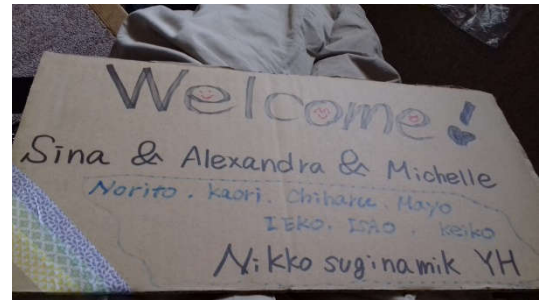 Welcome!
Sina & Alexandra & Michelle
Norito . Kaori . Chiharu . Mayo
IEKO . ISAO . Keiko
Nikko suginamik YH